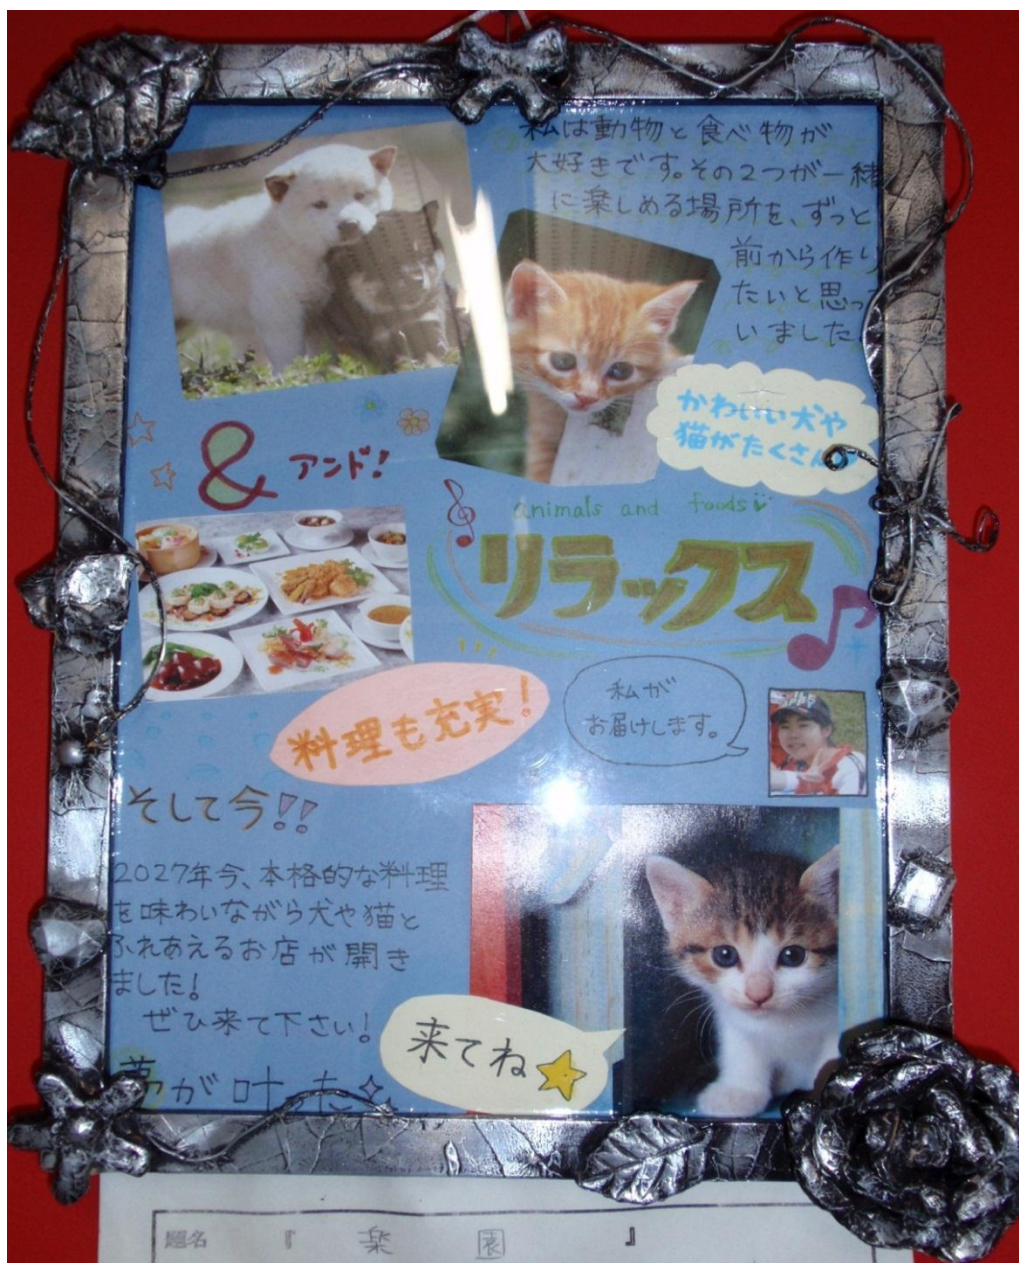 私は動物と食べ物が
大好きです。その2つが一緒
に楽しめる場所を、ずっと
前から作り
たいと思っ
いました。
かわいい犬や
猫がたくさん
& アンド!
animals and foods
リラックス
料理も充実!
私が
お届けします。
そして今!!
2027年今、本格的な料理
を味わいながら犬や猫と
ふれあえるお店が開き
ました!
ぜひ来て下さい!
来てね
夢が叶った
題名 『 楽園 』